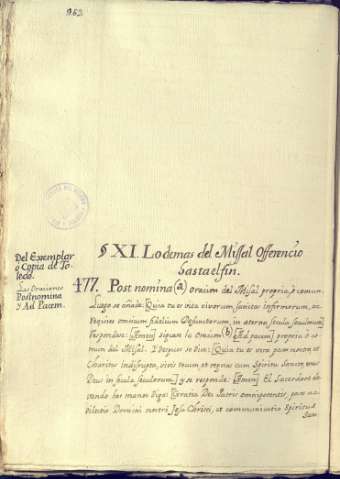 962.
§ XI. Lo demas del Missal Offerencio
hasta el fin.
Del Exemplar
o Copia de To-
ledo.
Las Oraciones
Postnomina
y Ad Pacem.
477. Post nomina (a) oracion del Misal propria, o comun.
Luego se añade: [Quia tu es vita vivorum, sanitas infirmorum, ac
requies omnium fidelium defunctorum, in aeterna secula seculorum]
Responden: [Amen] siguen la Oracion (b) [Ad pacem] propria o co-
mun del Misal. Y despues se dice: [Quia tu es vera pax nostra, et
Charitas indisrupta, vivis tecum et regnas cum Spiritu Sancto, unus
Deus in secula seculorum] y se responde: [Amen] El Sacerdote ele-
vando las manos diga: [Gratia Dei Patris omnipotentis, pax ac
dilectio Domini nostri Jesu Christi, et communicatio Spiritus
San-